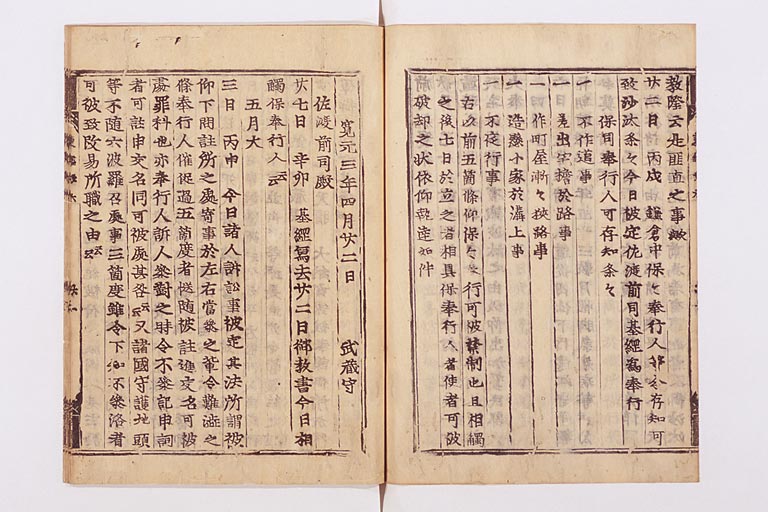 教隆云此匪直之事歟
廿二日 丙戌 鎌倉中保々奉行人 存知可
致沙汰条々今日被定佐渡前司基經為奉行
保司奉行人可存知条々
一 不作道事
一 差出宅檐於路事
一 作町屋漸々狭路事
一 造懸小家於溝上事
一 不夜行事
右以前五箇條仰保々奉行可被禁制也且相觸
之後七日於立之者相具保奉行人者使者可被
前破却之状依仰執達如件
寛元三年四月廿二日 武蔵守
佐渡前司殿
廿七日 辛卯 基經寫去廿二日御教書今日相
觸保奉行人云云
五月大
三日 丙申 今日諸人訴訟事被定其法所謂被
仰下問註所之處寄事於左右當参之輩令難澁之
條奉行人催促過五箇度者慥随被註進交名可被
處罪科也亦奉行人訴人参對之時令不参記申詞
者可註申交名同可被處其咎云云又諸國守護地頭
等不随六波羅召處事三箇度雖令下知不参洛者
可被致改易所職之由云云